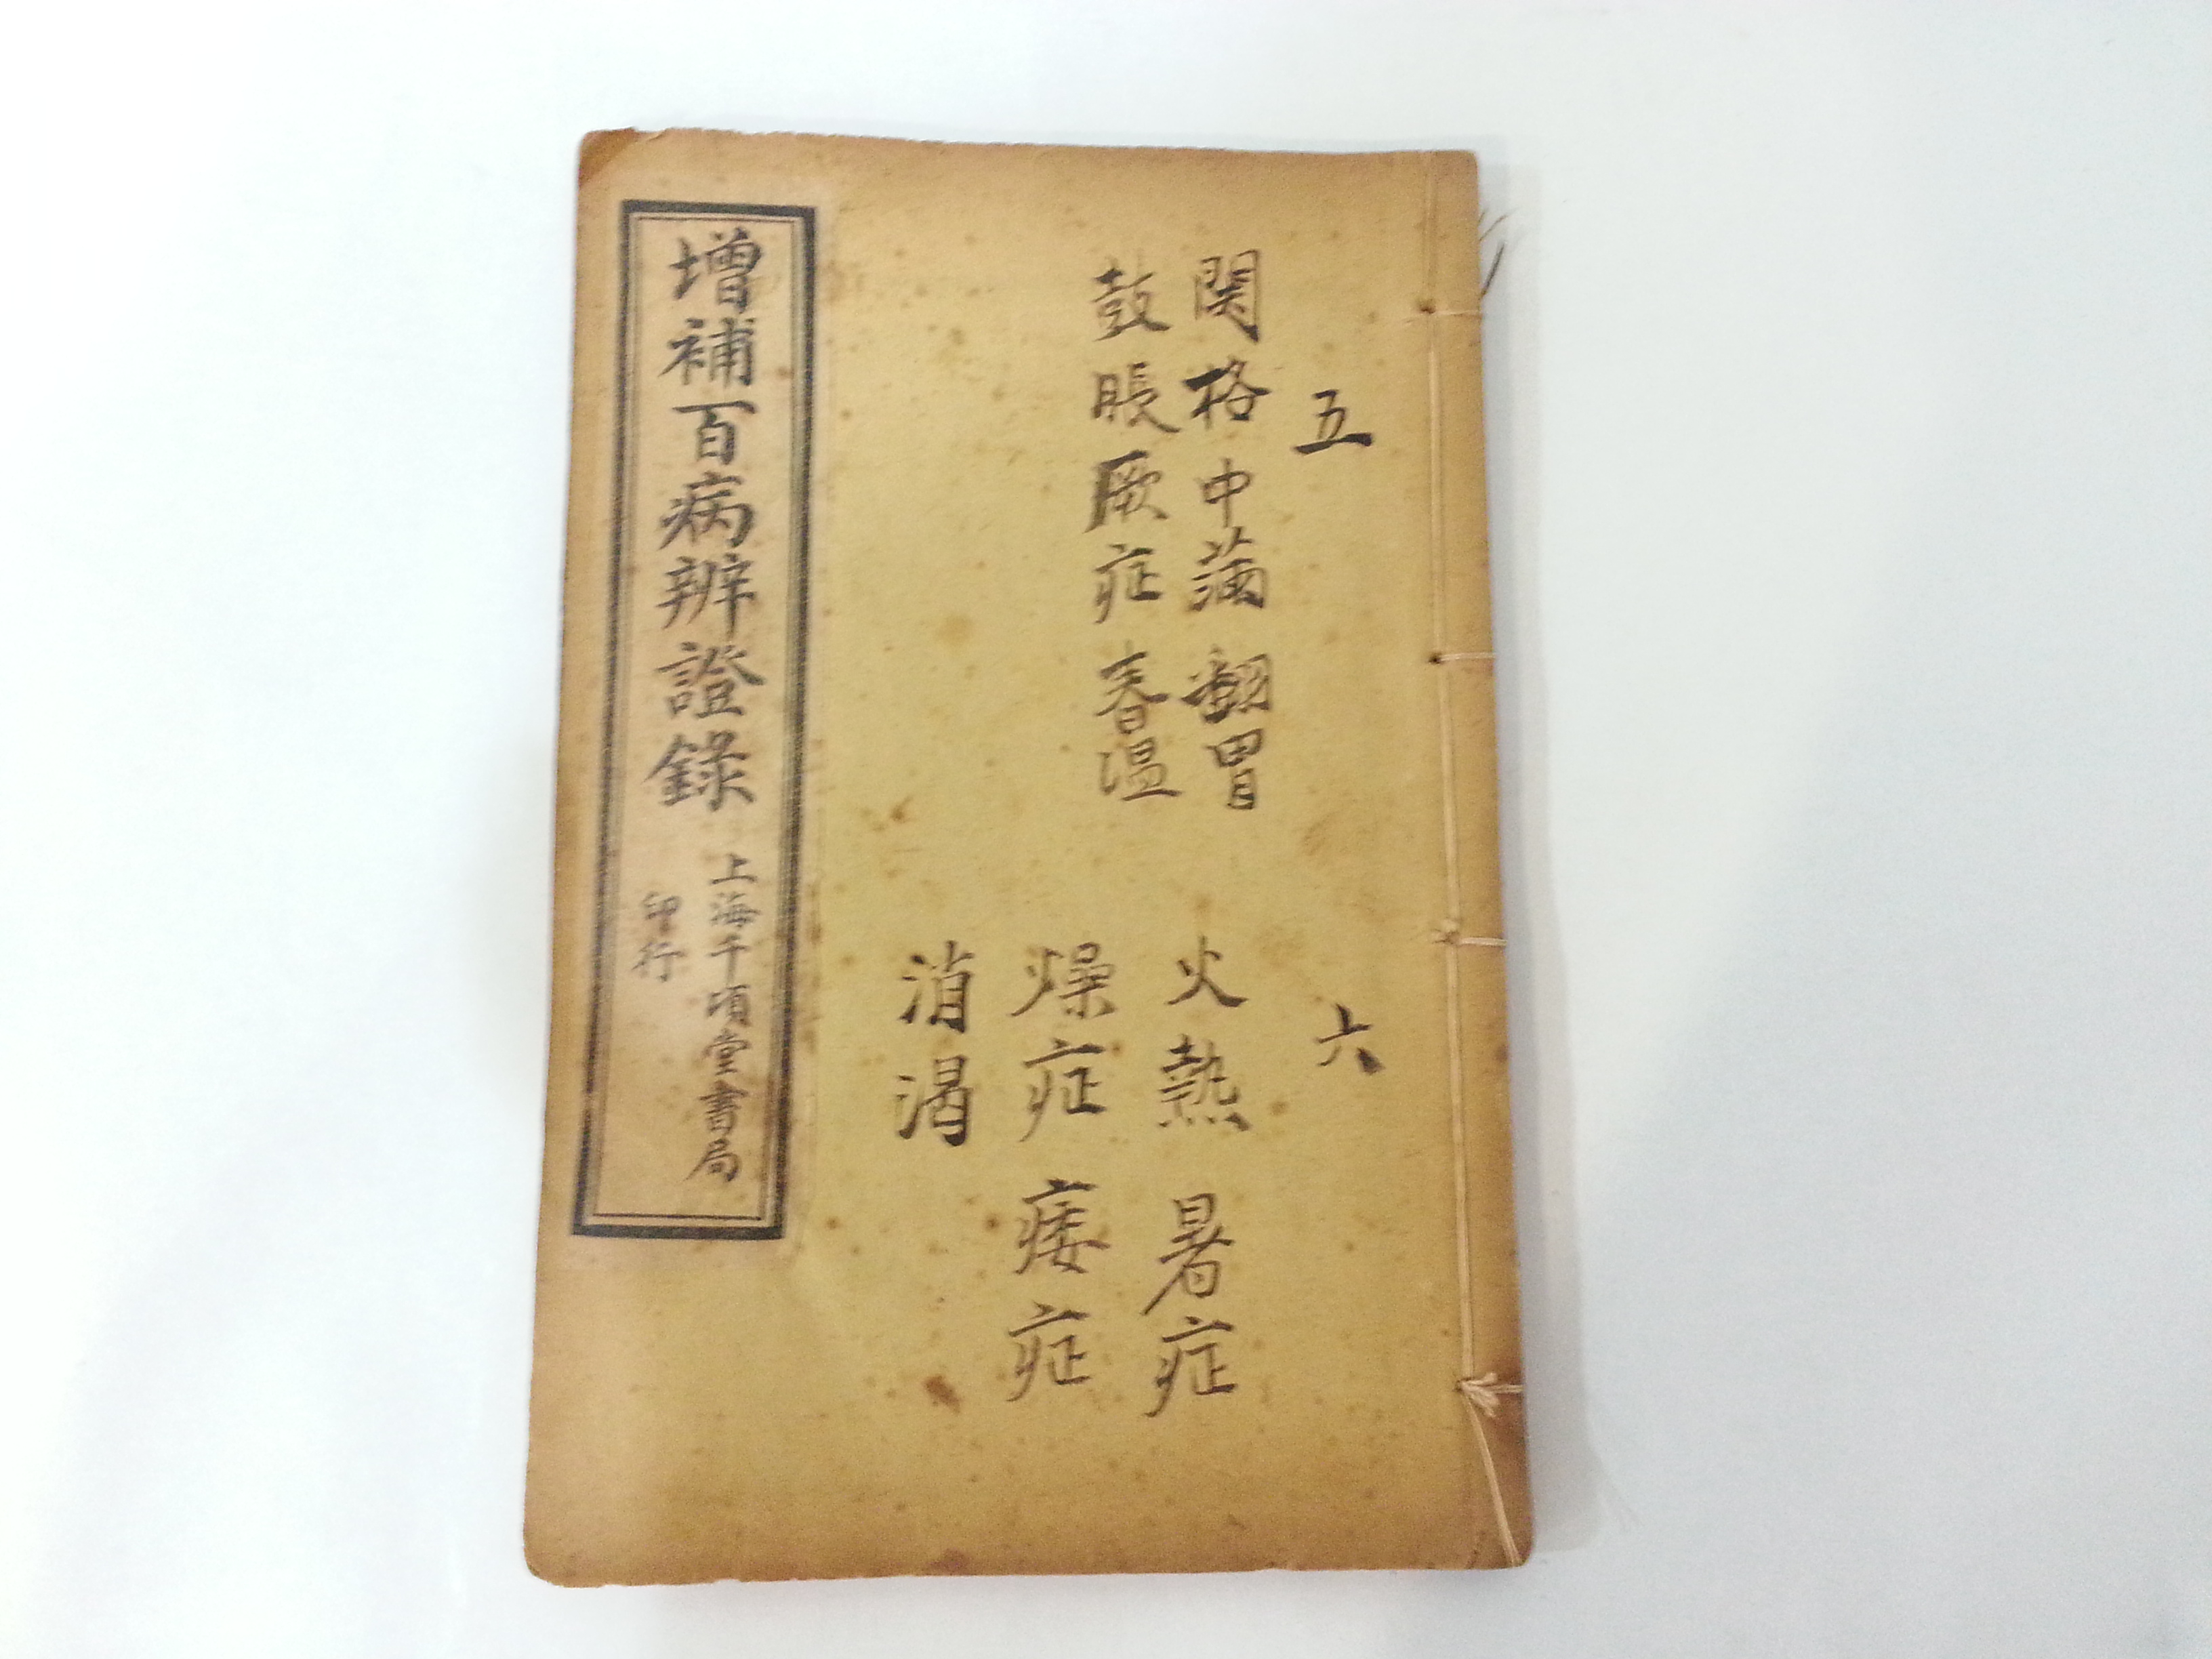 五
関格 中滿 翻胃
鼓脹 厥症 春温
六
火熱 暑症
燥症 痿症
消渴
增補百病辨證錄
上海千頃堂書局
印行